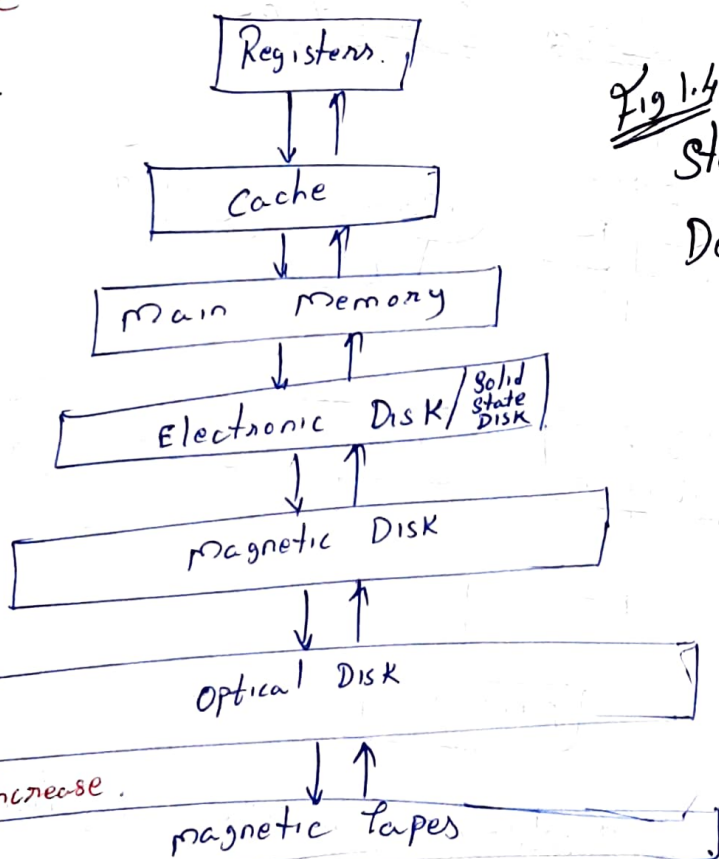 Registers.
Fig 1.4
Cache
Main Memory
Electronic Disk/ Solid
State
Disk
Magnetic Disk
Optical Disk
magnetic Tapes